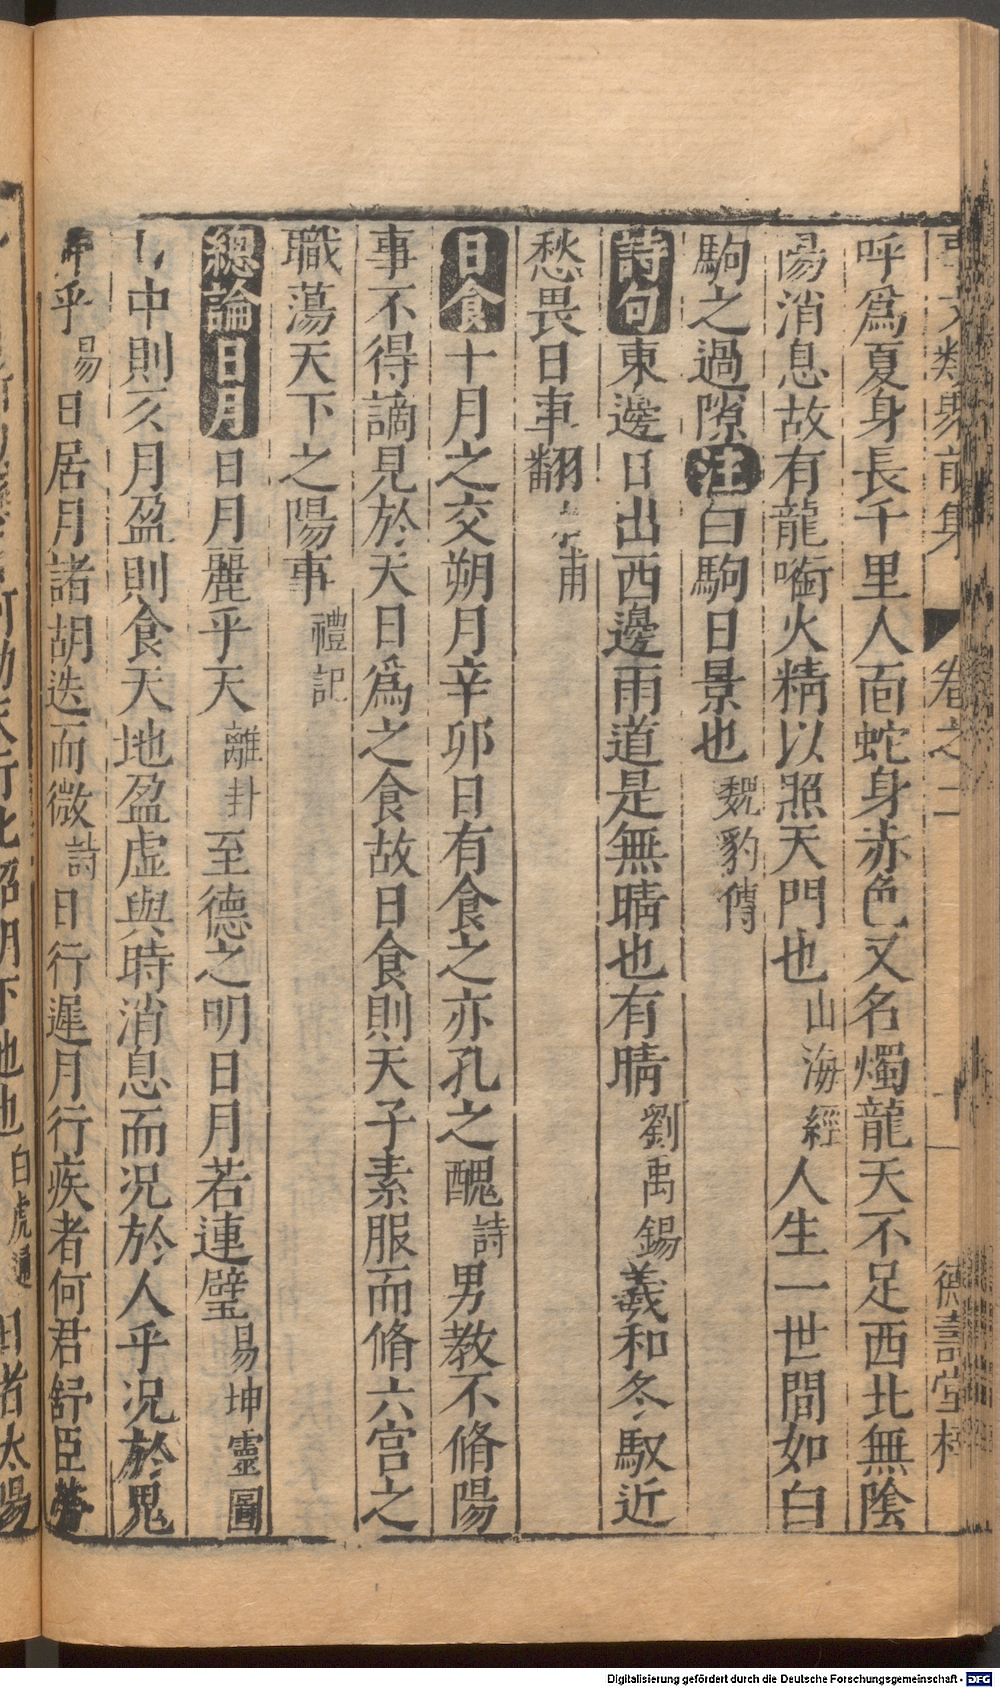 事文類聚前集 卷之二 德壽堂梓
呼爲夏身長千里人面蛇身赤色又名燭龍天不足西北無陰
陽消息故有龍啣火精以照天門也山海經人生一世間如白
駒之過隙注白駒日景也魏豹傳
詩句東邊日出西邊雨道是無晴也有晴劉禹錫羲和冬馭近
愁畏日車翻甫
日食十月之交朔月辛卯日有食之亦孔之醜詩男教不脩陽
事不得謫見於天日爲之食故日食則天子素服而脩六宫之
職蕩天下之陽事禮記
總論日月日月麗乎天離卦至德之明日月若連璧易坤靈圖
中則仄月盈則食天地盈虚與時消息而况於人乎况於鬼
神乎易日居月諸胡迭而微詩日行遲月行疾者何君舒臣勞
天行北昭明下地也白虎通日者太陽
Digitalisierung gefördert durch die Deutsche Forschungsgemeinschaft - DFG